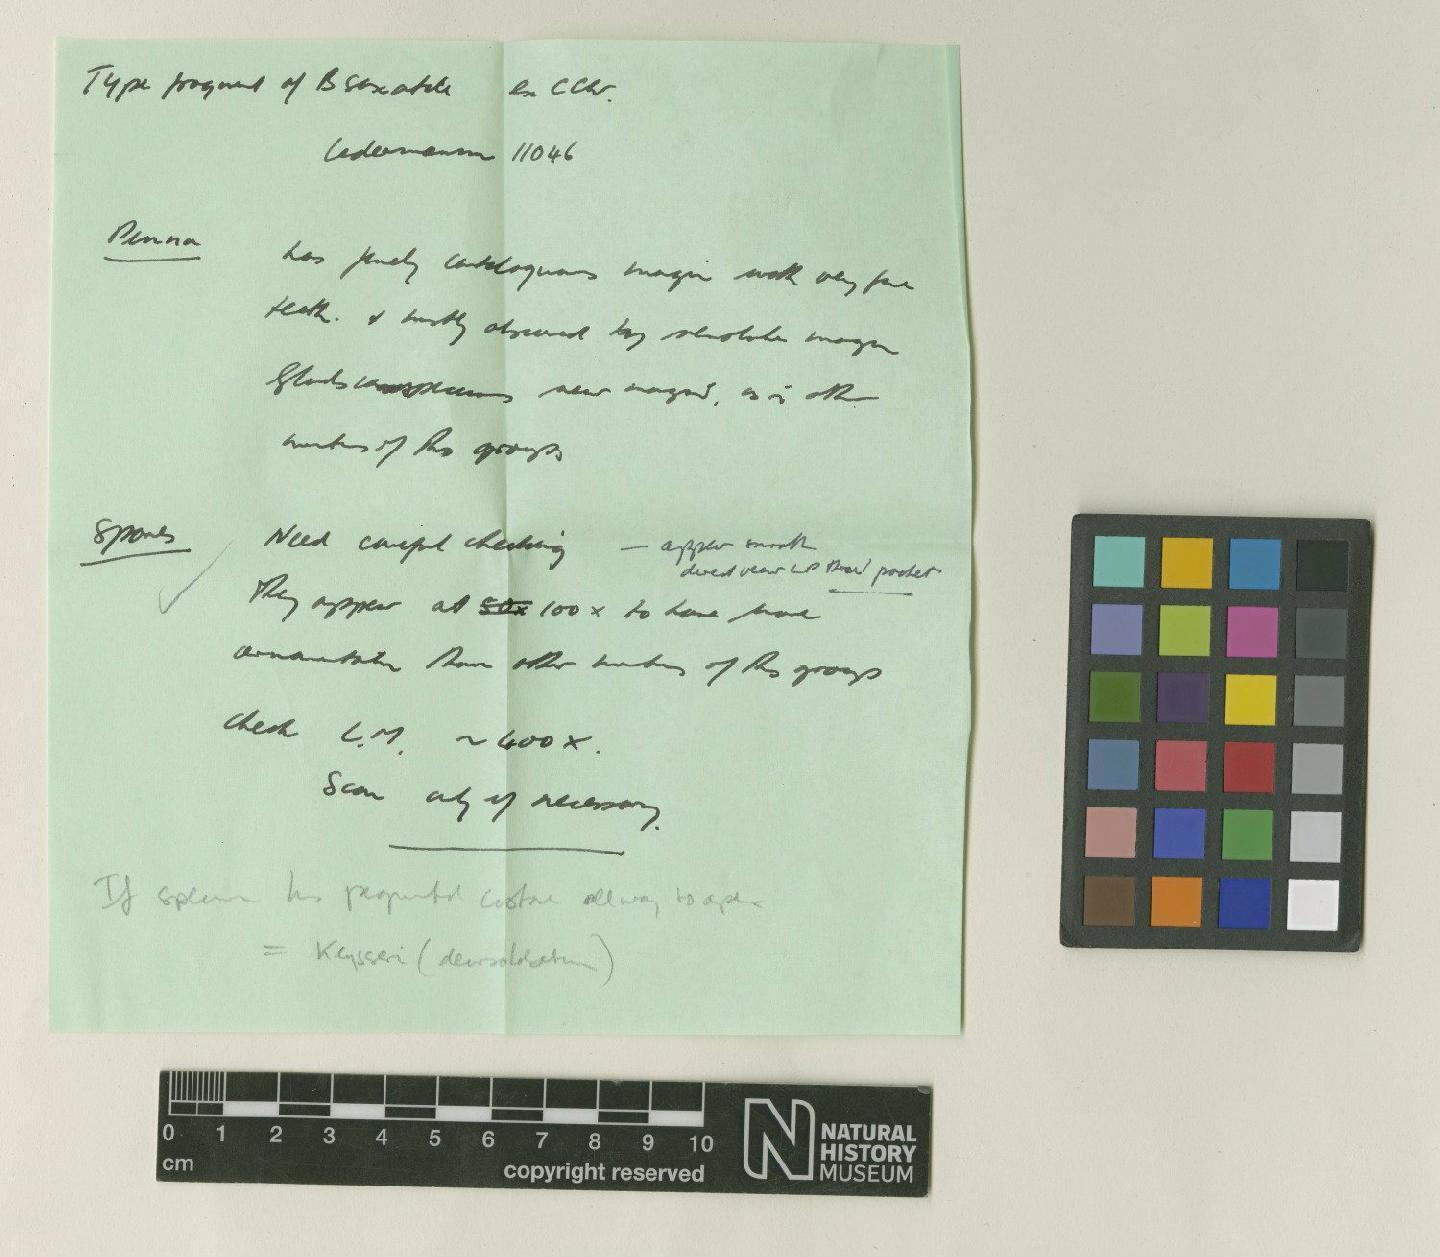 Type fragment of B saxatile ex CChr.
Ledermann 11046
Pinna has finely cartilaginous margin with very fine
teeth. & mostly obscured by margin
Glands near margin, as in other
members of this groups
Spores Need careful checking — appear smooth
pocket
They appear at 50x 100x to have more
ornamentation than other members of this groups
check L.M. ~ 400x.
Scan only if necessary.
If has costae all way to apex
= Keysseri ( )
0 1 2 3 4 5 6 7 8 9 10
cm
copyright reserved
NATURAL
HISTORY
MUSEUM